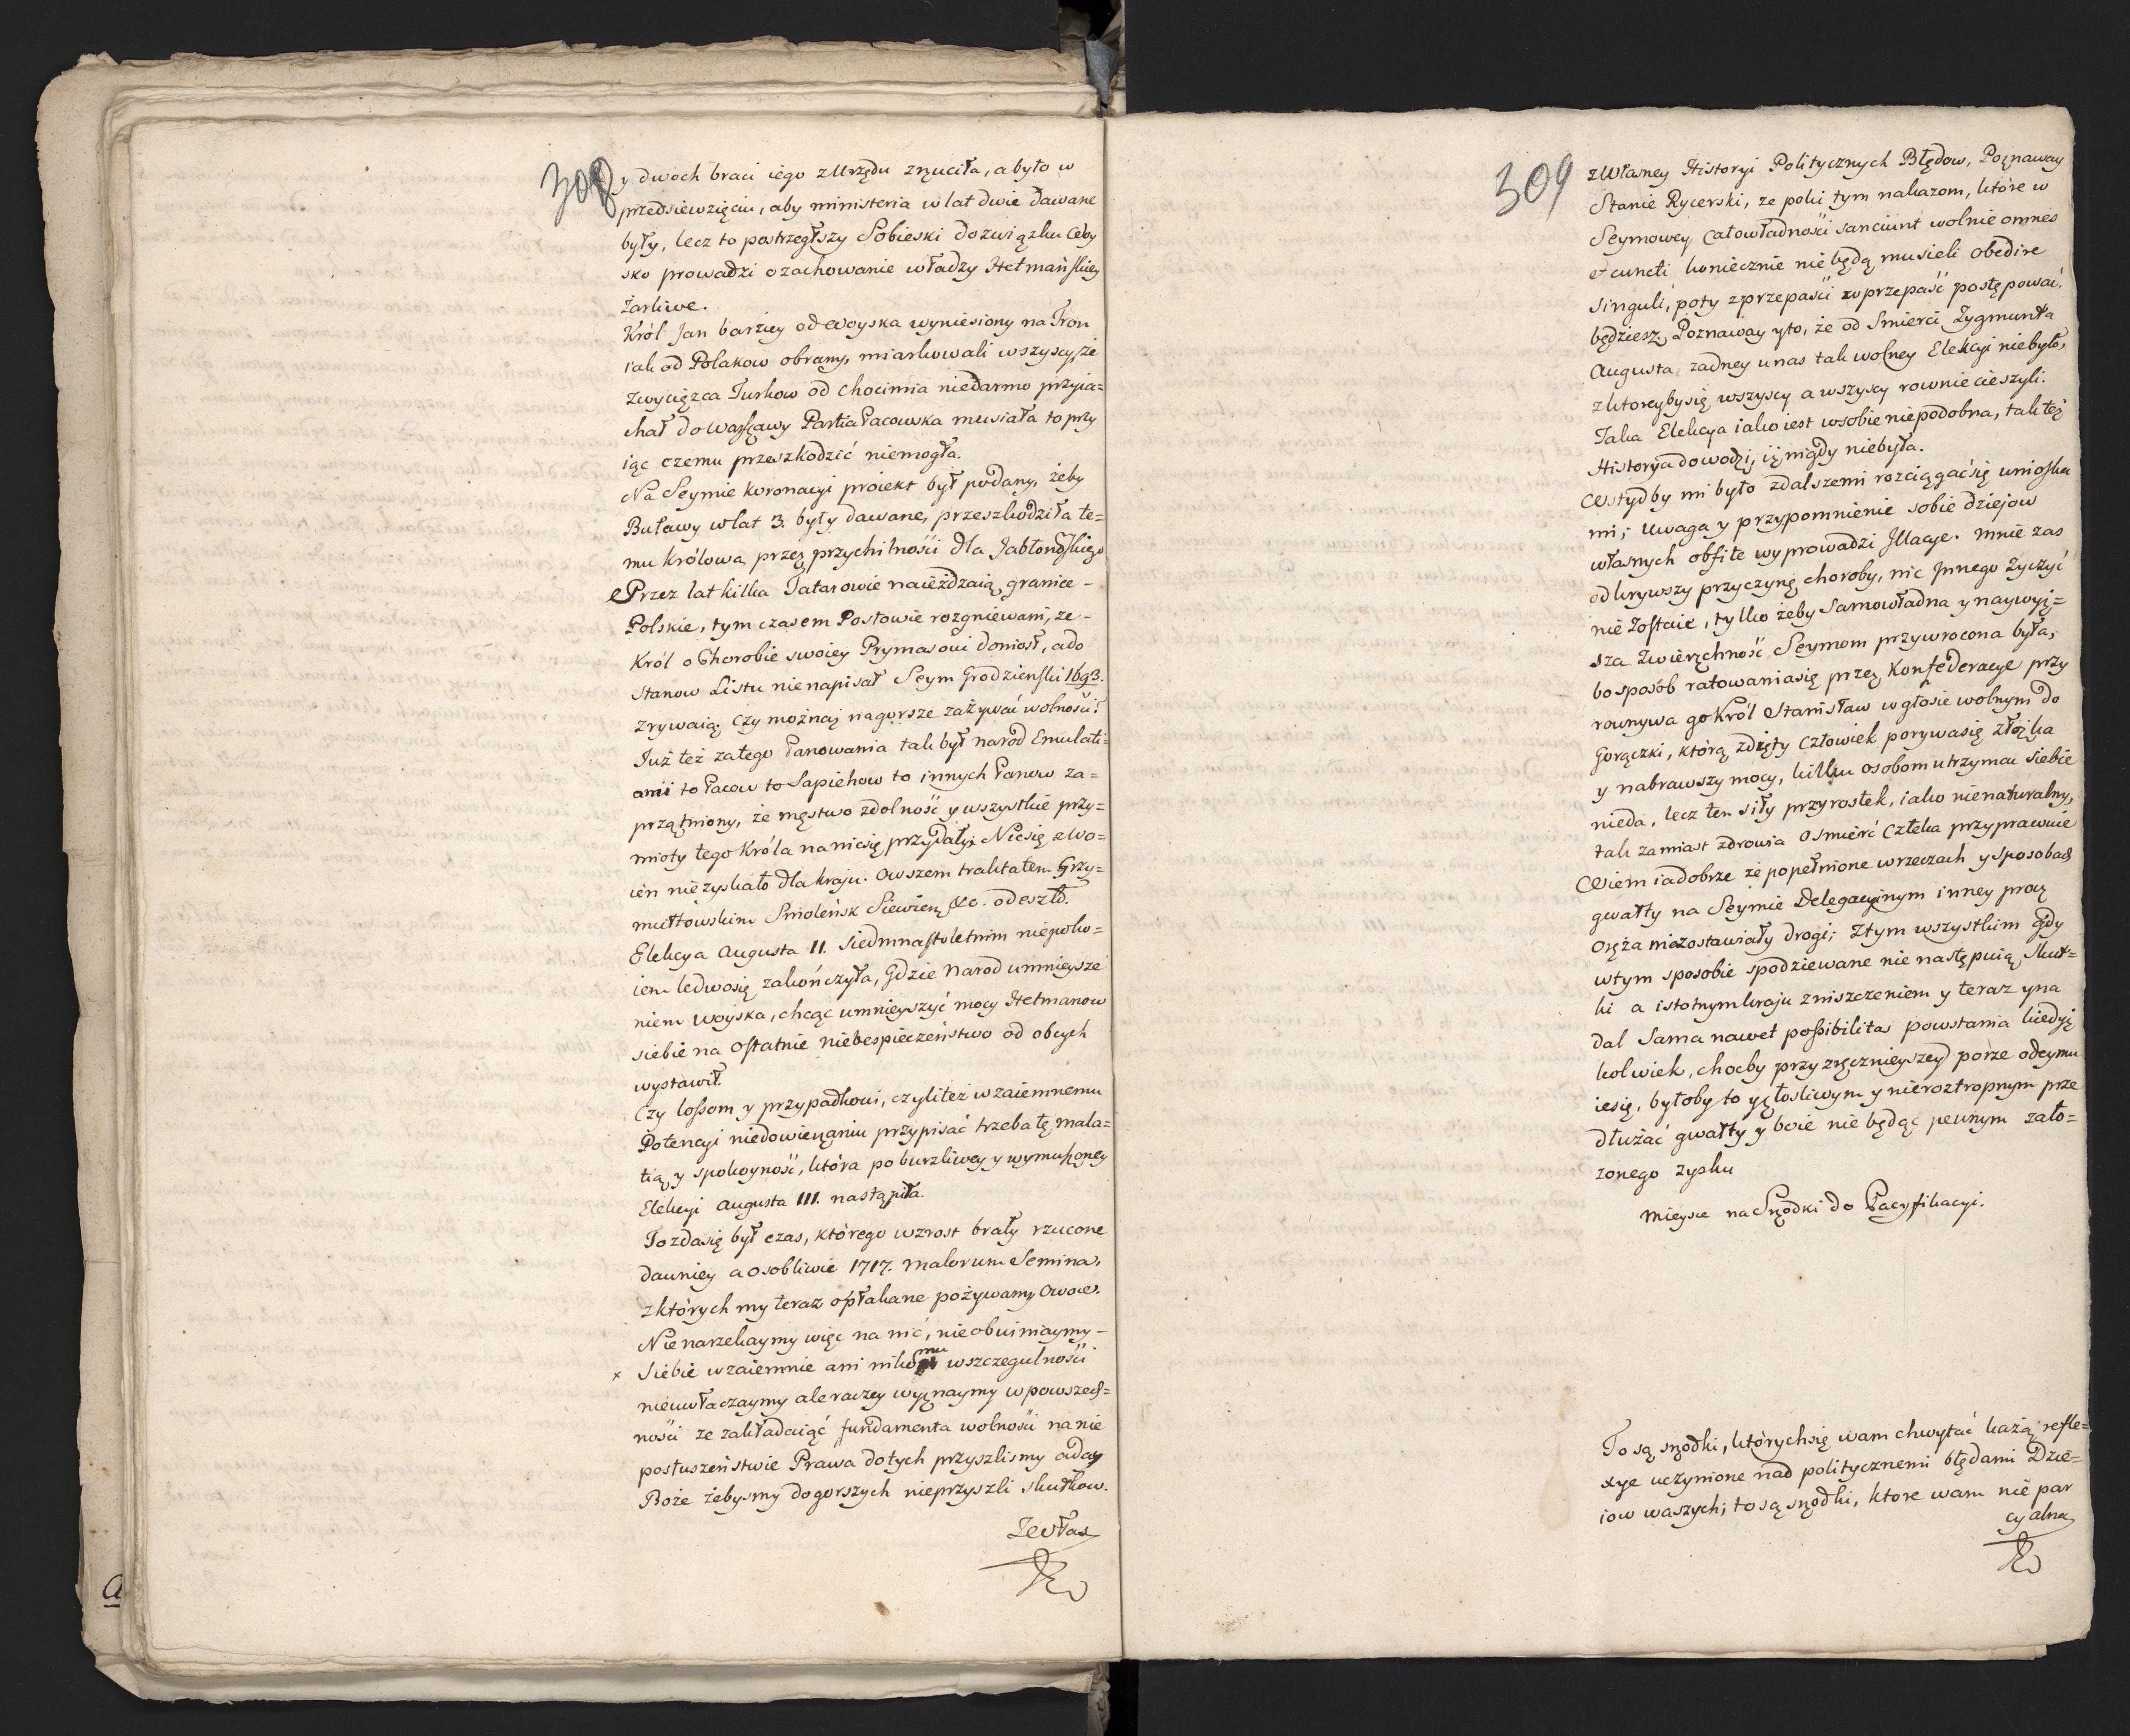 308
y dwoch braci iego z Urzędu zrzuciła, a było w
przedsiewzięciu, aby ministeria w lat dwie dawane
były, lecz to postrzegłszy Sobieski do związku Woy
sko prowadzi o zachowanie władzy Hetmańskiey
żarliwe.
Król Jan barziey od Woyska wyniesiony na Tron
iak od Polakow obrany, miarkowali wszyscy, że
zwycięzca Turkow od Chocimia niedarmo przyia=
chał do Warszawy Partia Pacowska musiała to przy
iąc czemu przeszkodzić niemogła.
Na Seymie koronacyi proiekt był podany, żeby
Buławy w lat 3. były dawane, przeszkodziła te=
mu królowa przez przychilności dla Jabłonoskiego
Przez lat kilka Tatarowie naieżdzaią granice -
Polskie, tym czasem Posłowie rozgniewani, ze -
Król o Chorobie swoiey Prymasowi doniosł, a do
stanow Listu nie napisał Seym Grodzienski 1693.
zrywaią. Czy możnaż na gorsze zażywać wolności?
Już też za tego Panowania tak był narod Emulati=
ami to Pacow to Sapiehow to innych Panow za=
przątniony, że męstwo zdolność y wszystkie przy=
mioty tego Króla na nic się przydały. Nic się Wo=
ien nie zyskało dla kraju. Owszem traktatem Grzy=
mułtowskim Smoleńsk Siewierz &c. odeszło.
Elekcya Augusta II. Siedmnastoletnim niepoko=
iem ledwo się zakończyła, Gdzie Narod umnieysze
niem Woyska, chcąc umnieyszyć mocy Hetmanow
siebie na Ostatnie niebespieczeństwo od obcych
wystawił.
Czy lossom y przypadkowi, czyli też wzaiemnemu
Potencyi niedowierzaniu przypisać trzeba tę mała=
tią y spokoyność, która po burzliwey y wymuszoney
Elekcyi Augusta III. nastąpiła.
To zda się był czas, którego wzrost brały rzucone
dawniey a osobliwie 1717. malorum Semina,
z których my teraz opłakane pożywamy Owoce.
Nie narzekaymy więc na nic, nie obwiniaymy -
x Siebie wzaiemnie ani nikomu w szczegulności
nieuwłaczaymy ale raczey wyznaymy w powszech=
ności ze zakładaiąć fundamenta wolności na nie
posłuszeństwie Prawa do tych przyszlismy a day
Boże żebysmy do gorszych nieprzyszli skutkow.
Zewłas
309
z Własney Historyi Politycznych Błędow, Poznaway
Stanie Rycerski, ze poki tym nakazom, które w
Seymowey Całowładności sanciunt wolnie omnes
et cuncti koniecznie nie będą musieli obedire
singuli, poty z przepaści w przepaść postępować
będziesz. Poznaway y to, że od Smierci Zygmunta
Augusta, zadney u nas tak wolney Elekcyi niebyło,
z ktoreyby się wszyscy a wszyscy rownie cieszyli.
Taka Elekcya iako iest w sobie niepodobna, tak też
Historya dowodzi, iż nigdy niebyła.
Wstyd by mi było z dalszemi rozciągać się wnioska
mi; Uwaga y przypomnienie sobie dziejow
własnych obfite wyprowadzi Illacye. mnie zas
odkrywszy przyczynę choroby, nic Jnnego życzyć
nie Zostaie, tylko żeby Samowładna y naywyż=
sza Zwierzchność Seymom przywrocona była,
bo sposób ratowania się przez Konfederacye przy
rownywa go Król Stanisław w głosie wolnym do
Gorączki, którą zdięty Człowiek porywa się z łóżka
y nabrawszy mocy, kilku osobom utrzymać siebie
nieda, lecz ten siły przyrostek, iako nienaturalny,
tak zamiast zdrowia o smierć Człeka przyprawuie
Wiem ia dobrze że popełnione w rzeczach y sposobach
gwałty na Seymie Delegacyinym inney procz
Oręża niezostawiały drogi; Z tym wszystkim gdy
w tym sposobie spodziewane nie następuią skut=
ki a istotnym kraju zniszczeniem y teraz y na
dal Sama nawet possibilitas powstania kiedyż
kolwiek, chocby przy zręcznieyszey porze odeymu
ie się, byłoby to y złosliwym y nieroztropnym prze
dłużać gwałty y boie nie będąc pewnym zało=
zonego zysku
Mieysce na Srzodki do Pacyfikacyi.
To są srzodki, których się wam chwytać każą refle=
xye uczynione nad politycznemi błędami Dzie=
iow waszych; to są srzodki, ktore wam nie par
cyalna